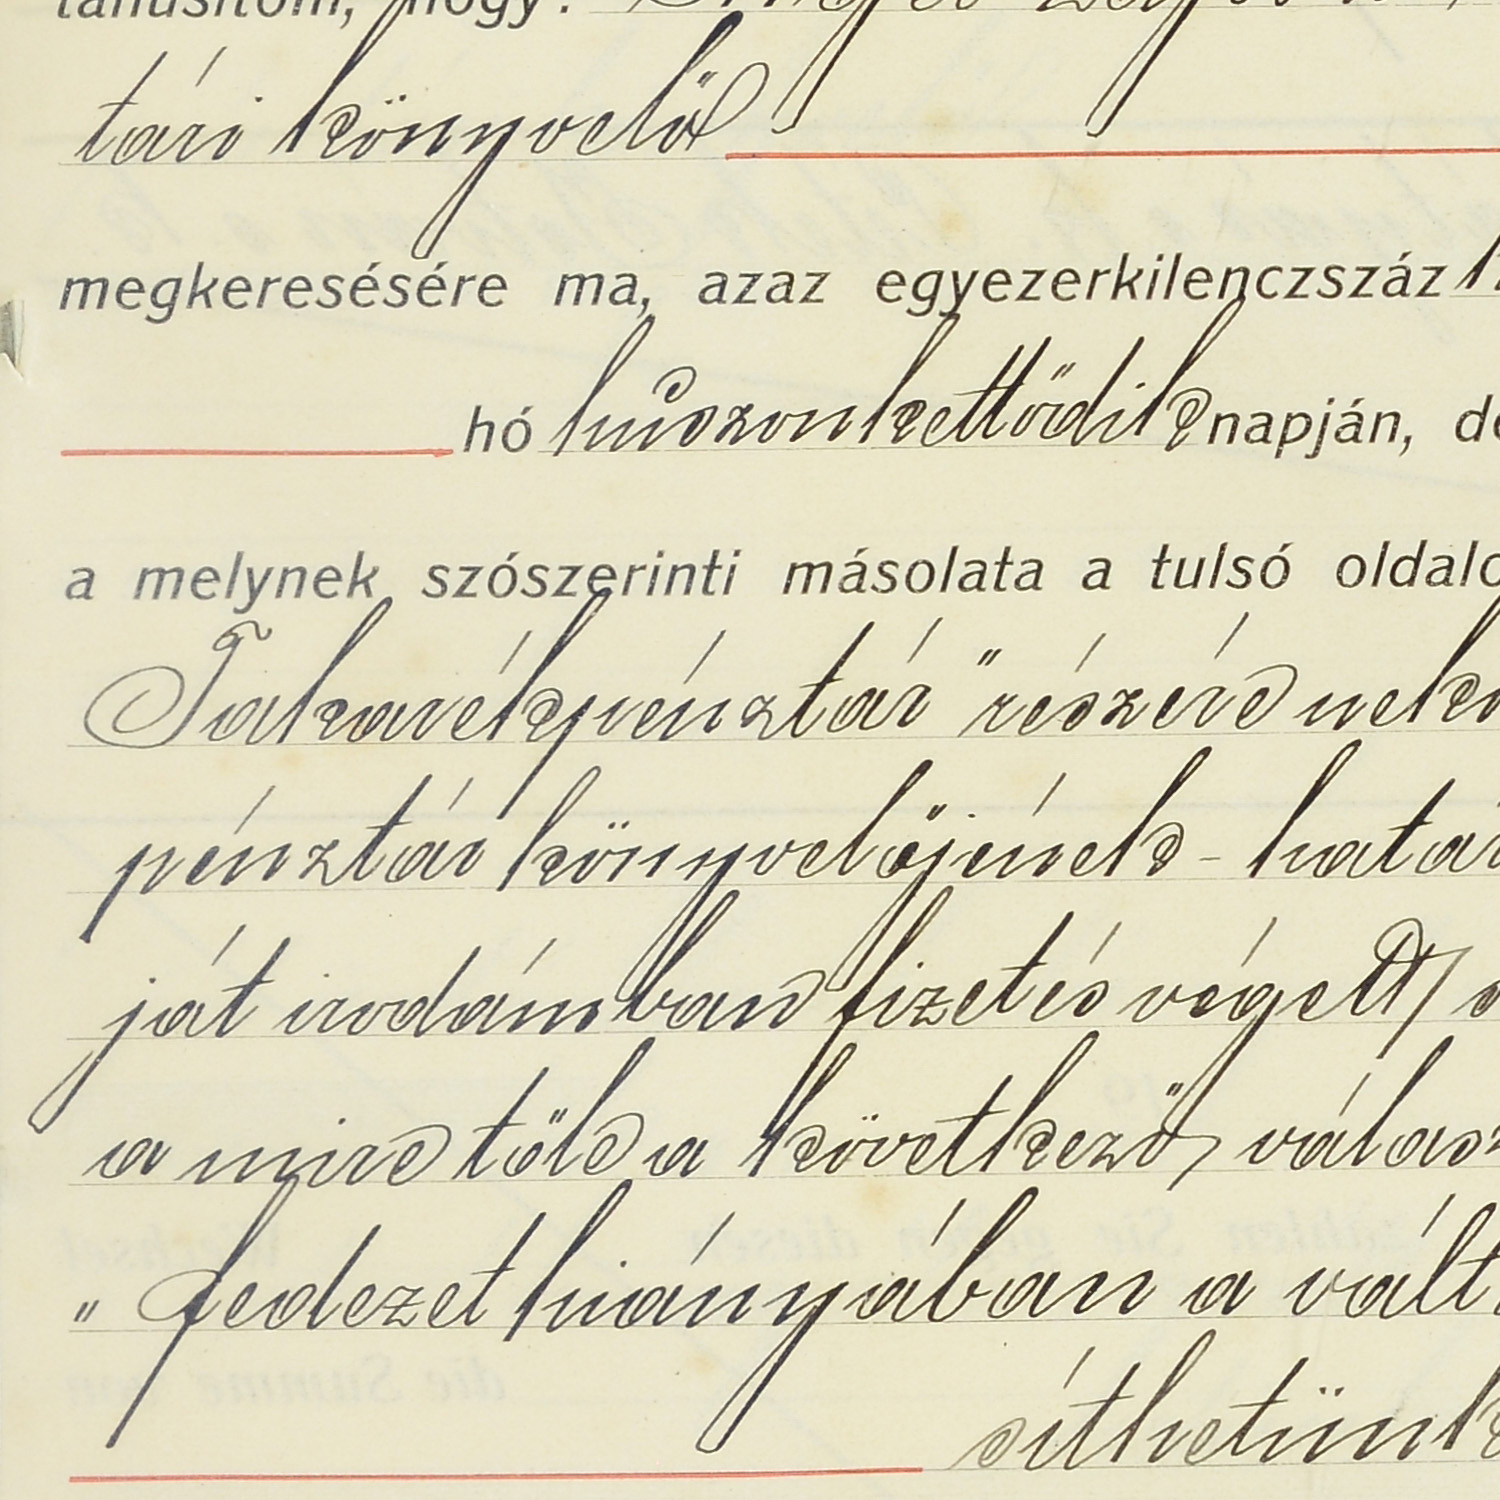 tanusítom, hogy:
tári könyvelő
megkeresésére ma, azaz egyezerkilenczszáz
hó huszonkettődik napján, de
a melynek szószerinti másolata a tulsó oldalo
Takarékpénztár" részére nek
pénztár könyvelőjének - hatá
ját irodámban fizetés végett,
a mire tőle a következő, válasz
" fedezet hiányában a vált
síthetünk